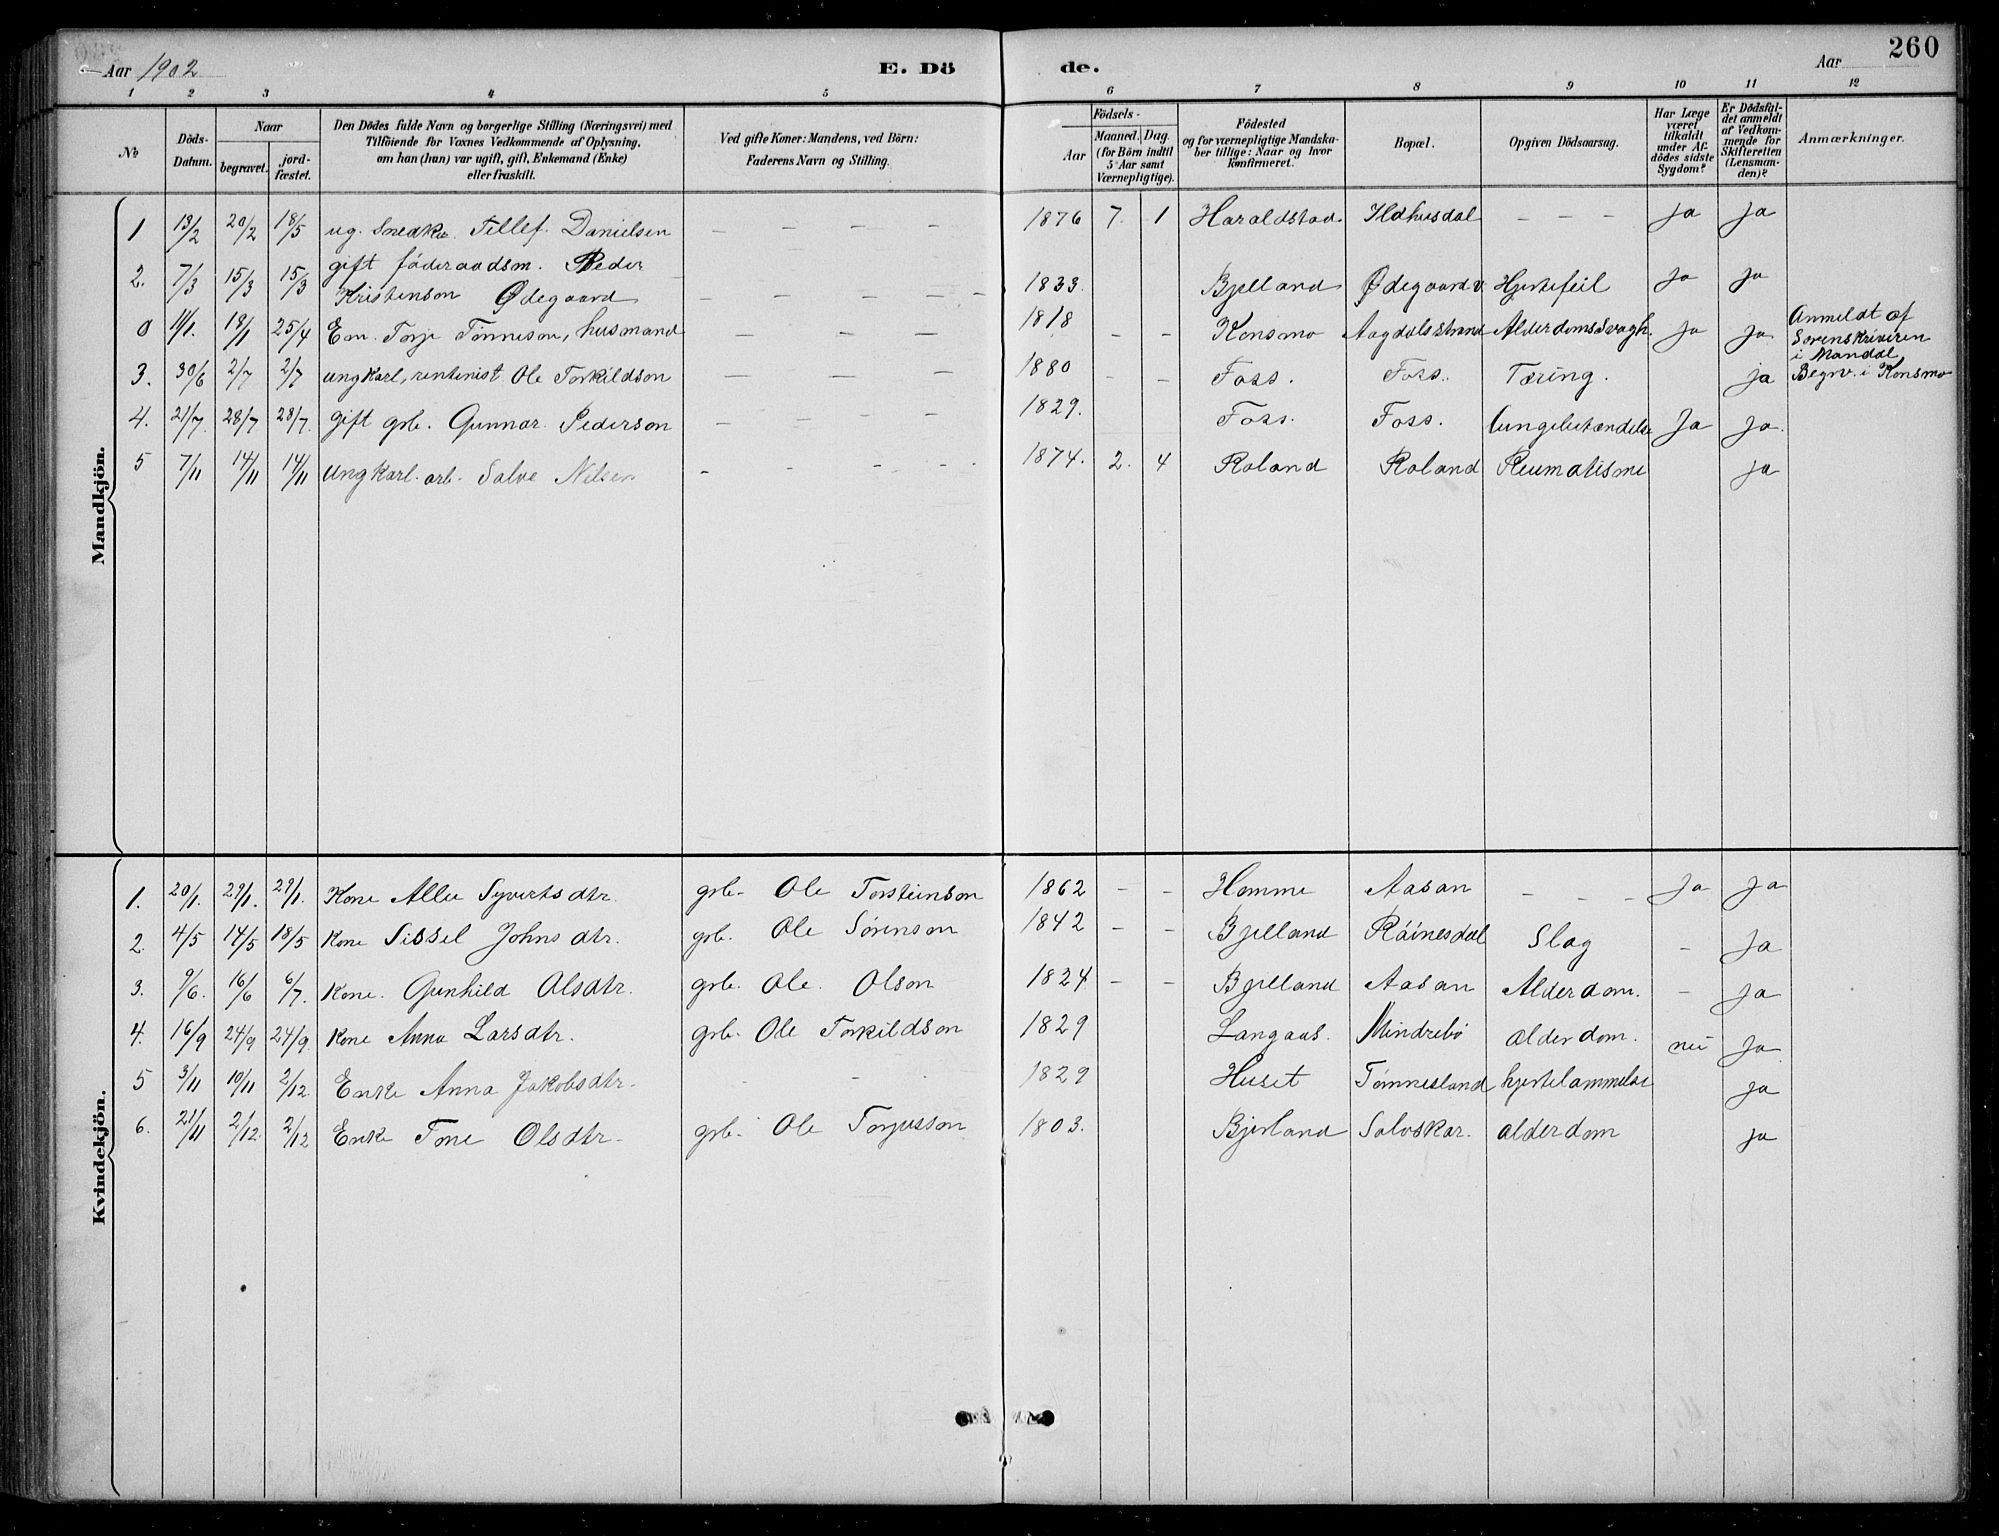 Aar 1902 E. Dö de. Aar 260
1 2 3 4 5 6 7 8 9 10 11 12
No
Döds-Datum.
Naar
begravet.
jord-fæstet.
Den Dödes fulde Navn og borgerlige Stilling (Næringsvei) med
Tilföiende for Voxnes Vedkommende af Oplysning,
om han (hun) var ugift, gift, Enkemand (Enke)
eller fraskilt.
Ved gifte Koner: Mandens, ved Börn:
Faderens Navn og Stilling.
Födsels-
Aar
Maaned. Dag.
(for Börn indtil
5 Aar samt
Værnepligtige).
Födested
og for værnepligtige Mandska-
ber tillige: Naar og hvor
konfirmeret.
Bopæl.
Opgiven Dödsaarsag.
Har Læge
været
tilkaldt
under Af-
dödes sidste
Sygdom?
Er Dödsfal-
det anmeldt
af Vedkom-
mende for
Skifteretten
(Lensman-
den)?
Anmærkninger.
Mandkjön.
1 13/2 20/2 18/5 ug. Snedker Tellef Danielsen – – – – 1876 7. 1 Haraldstad Ildhusdal – – – Ja Ja
2. 7/3 15/3 15/3 gift föderaadsm. Peder
Kristenson Ødegaard – – – – – 1833. Bjelland Ødegaard v Hjertefeil Ja Ja
0 11/1. 18/1 25/4 Em. Torje Tönneson, husmand – – – – 1818 – – Konsmo Aagdalsstrand Alderdomssvagh. Ja Ja Anmeldt af
Sorenskriveren
i Mandal
Begrv. i Konsmo
3. 30/6 2/7 2/7 ungkarl, rentenist Ole Torkildson – – – – 1880 – – Foss. Foss. Tæring. ja
4. 21/7. 28/7 28/7. gift grb. Gunnar Pederson – – – – 1829. Foss. Foss. Lungebetændelse Ja Ja.
5 7/11 14/11 14/11 Ungkarl. arb. Salve Nilsen – – – – 1874. 2. 4 Roland Roland Reumatisme ja
Kvindekjön.
1. 20/1. 29/1. 29/1. Kone Allu Syvertsdtr. grb. Ole Torsteinson 1862 – – Homme Aasan – – – Ja Ja
2. 4/5 14/5 18/5 Kone Sissel Johnsdtr. grb. Ole Sörenson 1842 – – Bjelland Räinesdal Slag – Ja
3. 9/6. 16/6 6/7. Kone. Gunhild Olsdtr. grb. Ole. Olson 1824 – – Bjelland Aasan Alderdom. – Ja
4. 16/9 24/9 24/9. Kone Anna Larsdtr. grb. Ole Torkildson 1829 Langaas. Mindrebö alderdom. nei Ja
5 3/11 10/11 2/12. Enke Anna Jakobsdtr. – – 1829 Huset Tönnesland hjertelammelse ja
6. 21/11 2/12. 2/12 Enke Tone Olsdtr. grb. Ole Torjusson 1803. Bjerland Salvskar. alderdom ja